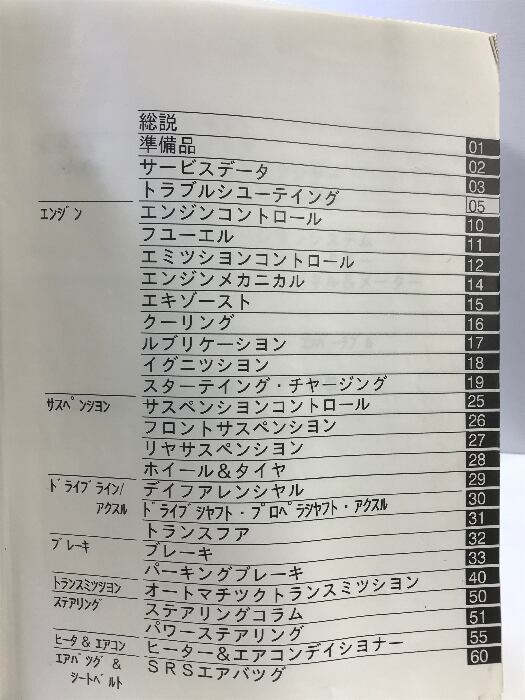 総説 01
準備品 02
サービスデータ 03
トラブルシユーテイング 05
エンジン エンジンコントロール 10
フユーエル 11
エミツシヨンコントロール 12
エンジンメカニカル 14
エキゾースト 15
クーリング 16
ルブリケーシヨン 17
イグニツシヨン 18
スターテイング・チヤージング 19
サスペンシヨン サスペンシヨンコントロール 25
フロントサスペンシヨン 26
リヤサスペンシヨン 27
ホイール&タイヤ 28
ドライブライン/アクスル デイフアレンシヤル 29
ドライブシヤフト・プロペラシヤフト・アクスル 30
トランスフア 31
ブレーキ ブレーキ 32
パーキングブレーキ 33
トランスミツシヨン オートマチツクトランスミツシヨン 40
ステアリング ステアリングコラム 50
パワーステアリング 51
ヒータ&エアコン ヒーター&エアコンデイシヨナー 55
エアバツグ&シートベルト SRSエアバツグ 60